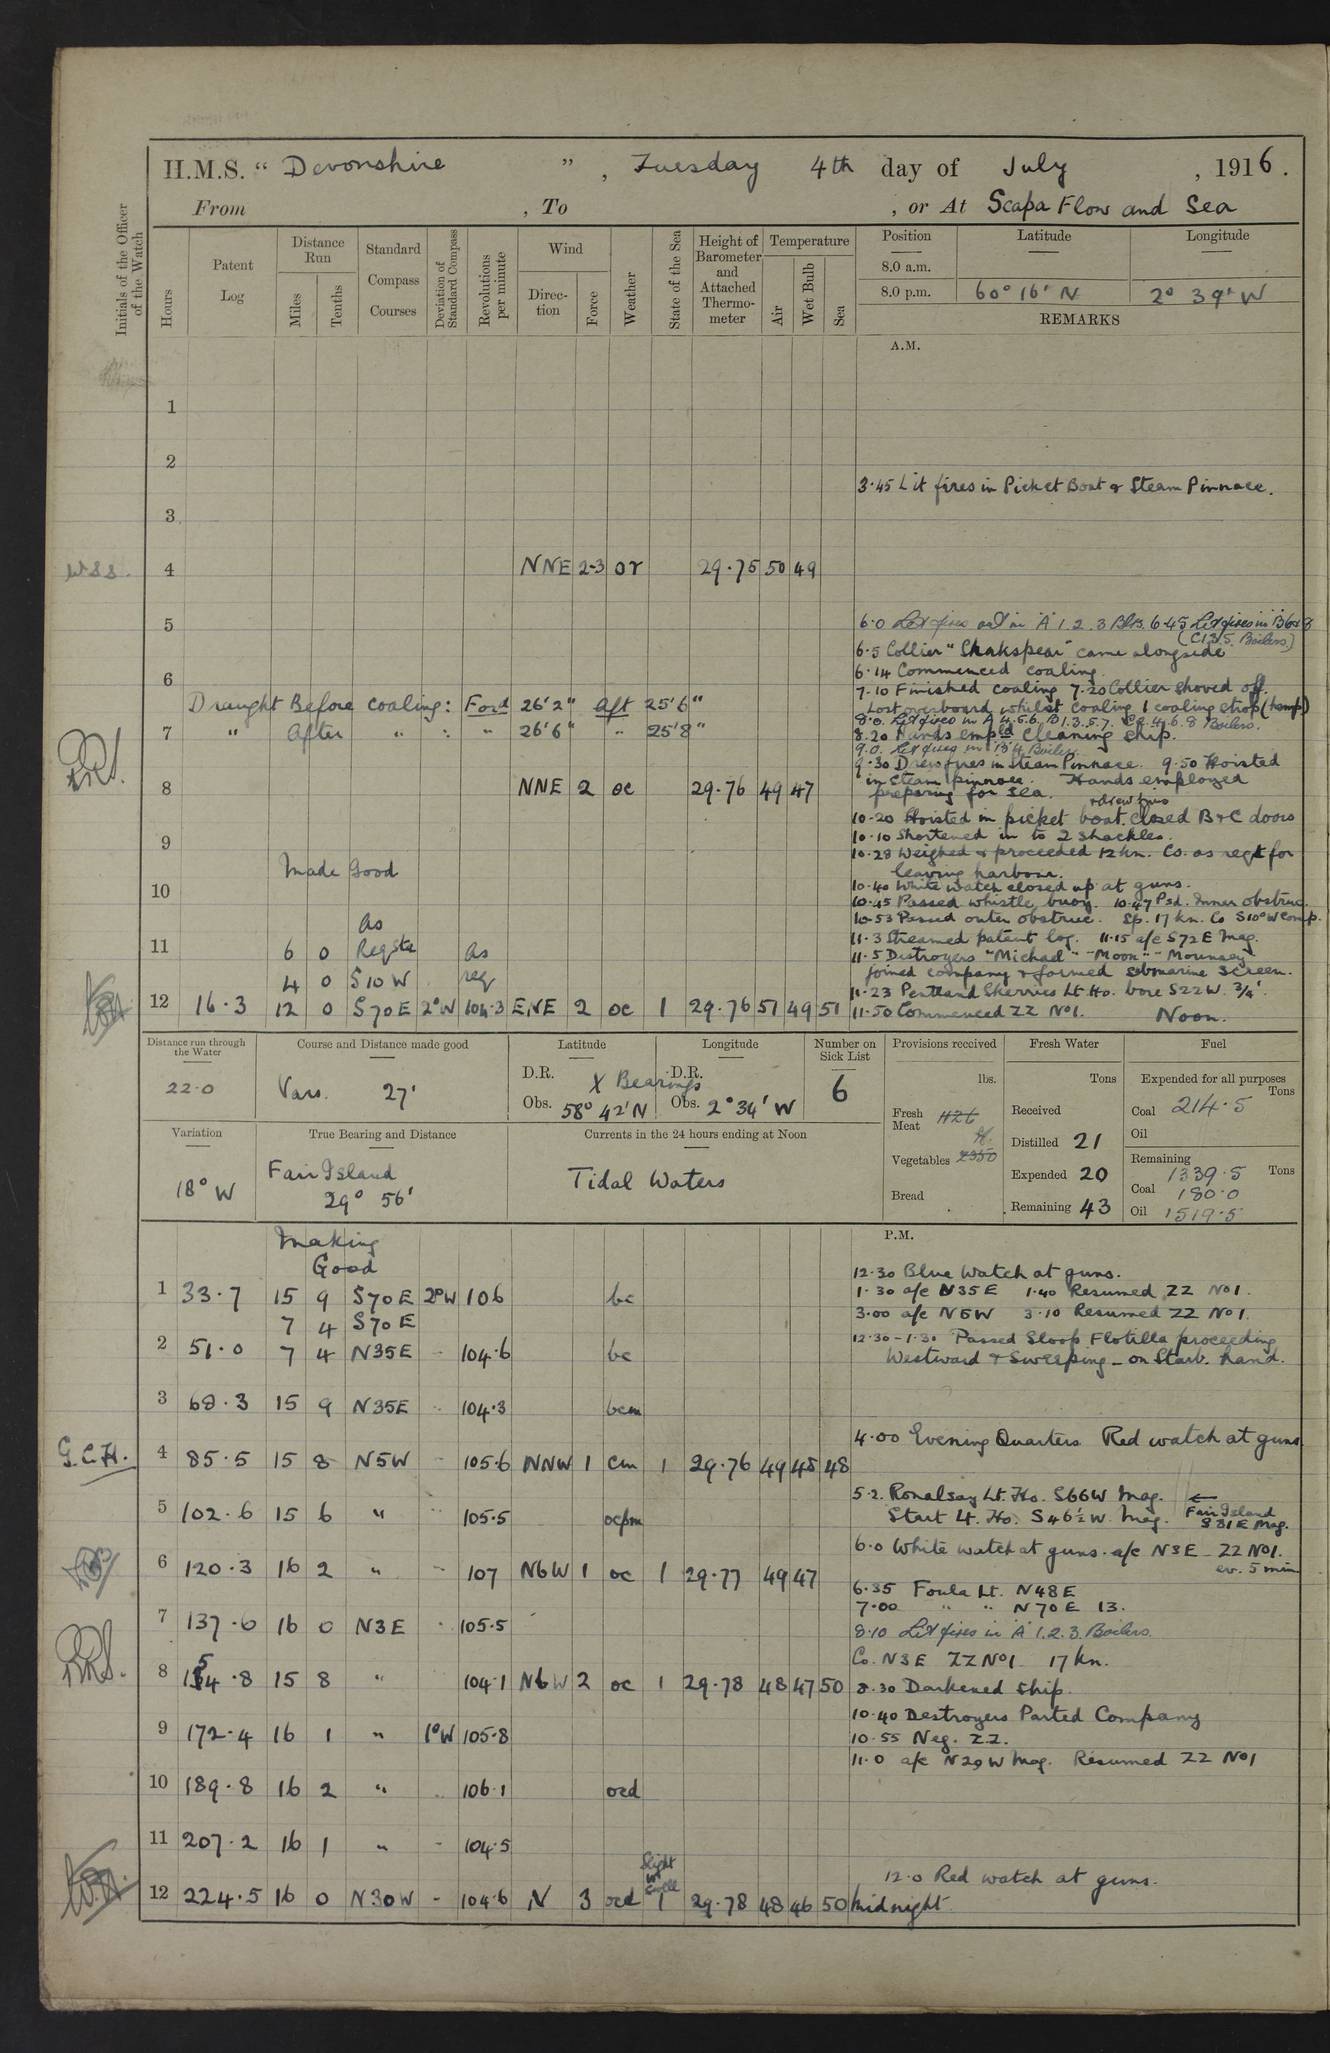 H.M.S. " Devonshire ", Tuesday 4th day of July, 1916.
From , To , or At Scapa Flow and Sea
Initials of the Officer of the Watch
Hours
Patent Log
Distance Run
Miles
Tenths
Standard Compass Courses
Deviation of Standard Compass
Revolutions per minute
Wind
Direc-tion
Force
Weather
State of the Sea
Height of Barometer and Attached Thermo-meter
Temperature
Air
Wet Bulb
Sea
Position Latitude Longitude
8.0 a.m.
8.0 p.m. 60° 16' N 2° 39' W
REMARKS
A.M.
1
2
3.45 Lit fires in Picket Boat & Steam Pinnace.
3
W.S.S. 4 NNE 2-3 or 29.75 50 49
5
6.0 Let fires out in 'A' 1.2.3 Blrs. 6.45 Let fires in B
(C 1.3.5. Boilers)
6.5 Collier "Shakspear" came alongside
6.14 Commenced coaling
6
7.10 Finished coaling 7.20 Collier shoved off.
Draught Before coaling: Ford 26'2" aft 25'6"
Lost overboard whilst coaling 1 coaling strop (hemp)
8.0. Let fires in A 4.5.6. B 1.3.5.7. 4.6.8 Boilers.
7 " After " : " 26'6" " 25'8"
8.20 Hands empld cleaning ship.
9.0. Let fires in 'B' 4 Boiler.
9.30 Drew fires in steam Pinnace. 9.50 Hoisted
in steam pinnace. Hands employed
8 NNE 2 oc 29.76 49 47
preparing for sea.
& drew fires
10.20 Hoisted in picket boat. Closed B & C doors
10.10 Shortened in to 2 shackles.
9
10.28 Weighed & proceeded 12 kn. Co. as reqd for
leaving harbour.
Made Good
10.40 White watch closed up at guns.
10
10.45 Passed whistle buoy. 10.47 Psd. Inner obstruc.
10.53 Passed outer obstruc. Sp. 17 kn. Co S10°W comp.
As
11.3 Streamed patent log. 11.15 a/c S72E Mag.
11 6 0 Reqste as
11.5 Destroyers "Michael" "Moon" "Mounsey"
joined company & formed submarine screen.
4 0 S10W req
11.23 Pentland Skerries Lt. Ho. bore S22W. 3/4'.
12 16.3 12 0 S70E 2°W 104.3 ENE 2 oc 1 29.76 51 49 51
11.50 Commenced ZZ No1. Noon.
Distance run through the Water
22.0
Course and Distance made good
Vars. 27'
Latitude
D.R.
Obs. 58° 42' N
X Bearings
Longitude
D.R.
Obs. 2° 34' W
Number on Sick List
6
Provisions received
lbs.
Fresh Meat 426
Vegetables 2350
Bread
Fresh Water
Tons
Received
Distilled 21
Expended 20
Remaining 43
Fuel
Expended for all purposes
Tons
Coal 214.5
Oil
Remaining
Tons
1339.5
Coal 180.0
Oil 1519.5
Variation
18° W
True Bearing and Distance
Fair Island
29° 56'
Currents in the 24 hours ending at Noon
Tidal Waters
P.M.
Making
Good
12.30 Blue Watch at guns.
1 33.7 15 9 S70E 2°W 106 bc
1.30 a/c N35E 1.40 Resumed ZZ No1.
7 4 S70E
3.00 a/c N5W 3.10 Resumed ZZ No1.
2 51.0 7 4 N35E - 104.6 bc
12.30-1.30 Passed Sloop Flotilla proceeding
Westward & Sweeping - on Starb. hand.
3 68.3 15 9 N35E 104.3 bcm
4.00 Evening Quarters Red watch at guns
G.C.H. 4 85.5 15 8 N5W - 105.6 NNW 1 cm 1 29.76 49 48 48
5.2. Ronalsay Lt. Ho. S66W Mag. ←
5 102.6 15 6 " 105.5 ocpm
Start Lt. Ho. S46½W. Mag. Fair Island
S81E Mag.
6.0 White watch at guns. a/c N3E ZZ No1.
ev. 5 min
6 120.3 16 2 " - 107 N6W 1 oc 1 29.77 49 47
6.35 Foula Lt. N48E
7.00 " " N70E 13.
7 137.6 16 0 N3E 105.5
8.10 Let fires in 'A' 1.2.3. Boilers.
Co. N3E ZZ No1 17 kn.
8 154.8 15 8 " 104.1 N6W 2 oc 1 29.78 48 47 50
8.30 Darkened ship.
10.40 Destroyers Parted Company
9 172.4 16 1 " 1°W 105.8
10.55 Neg. ZZ.
11.0 a/c N29W Mag. Resumed ZZ No1
10 189.8 16 2 " 106.1 ocd
11 207.2 16 1 " - 104.5
Slight
swell
12.0 Red watch at guns.
12 224.5 16 0 N30W - 104.6 N 3 ocd 1 29.78 48 46 50 Midnight